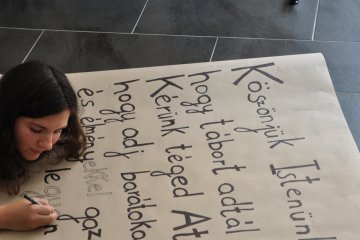 Köszönjük Istenünk
hogy tábort adtál
Kérünk téged At
hogy adj barátoka
és élményekkel gaz
legyen